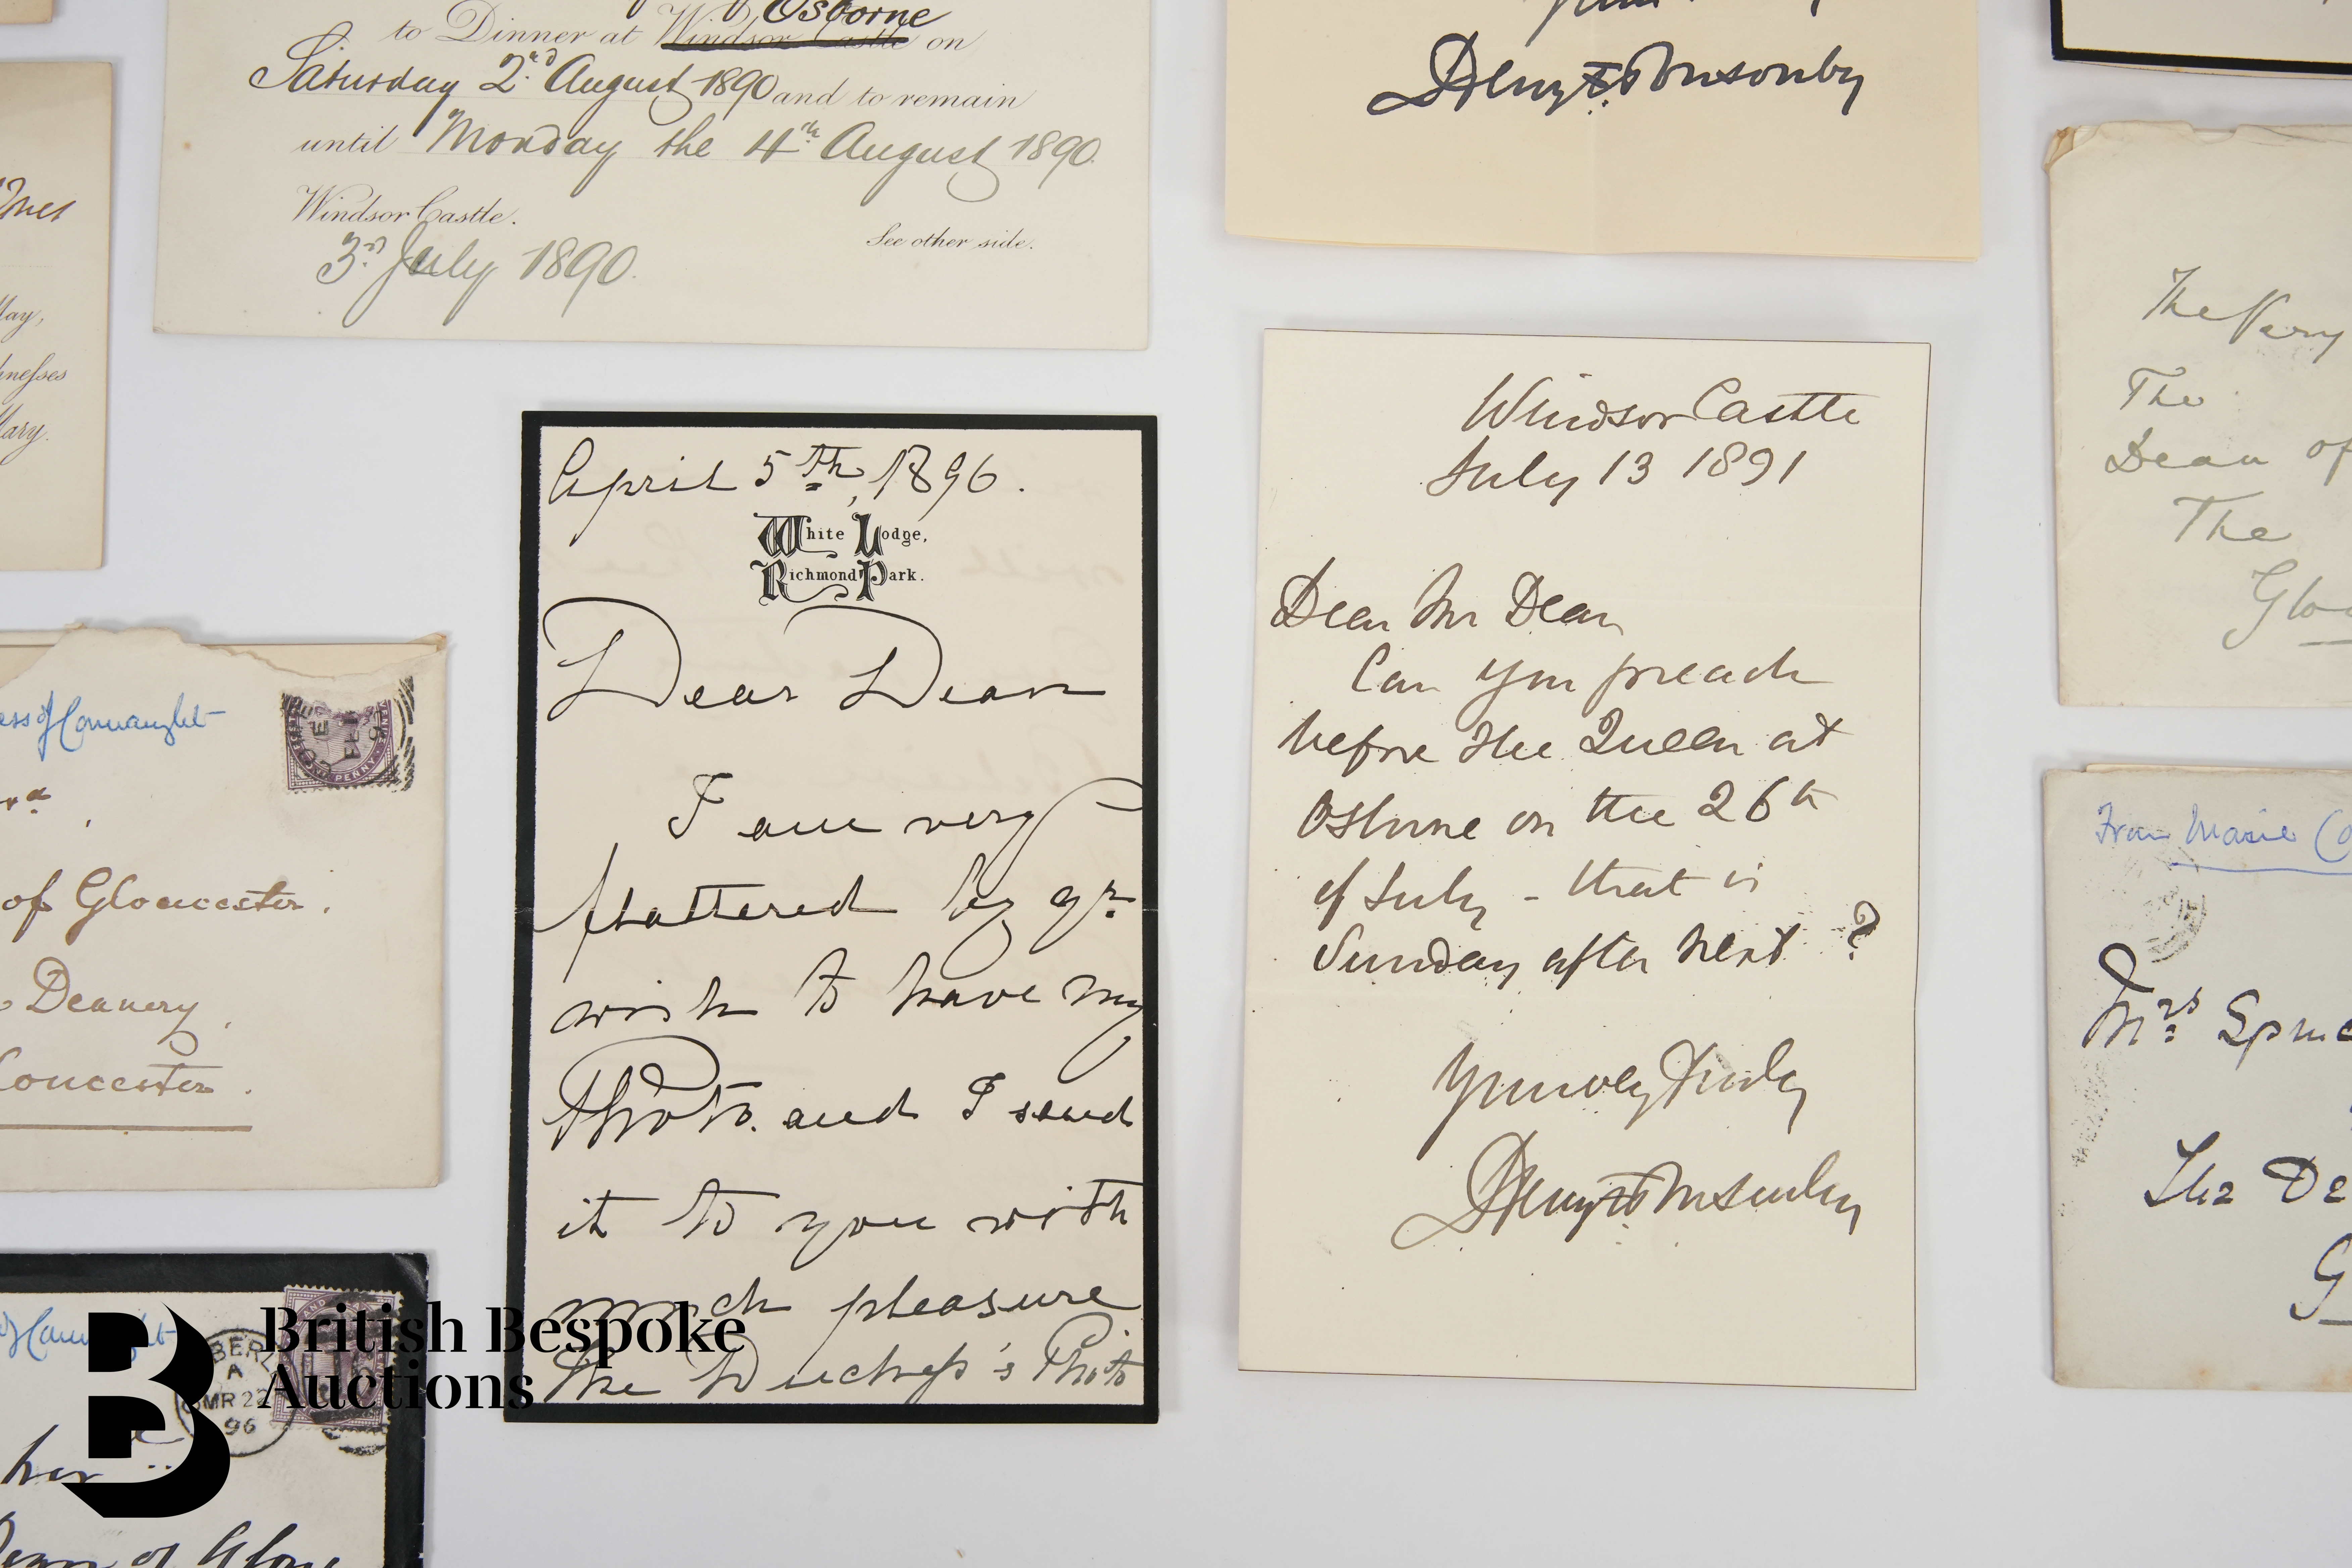 Osborne
to Dinner at Windsor Castle on
Saturday 2nd August 1890 and to remain
until Monday the 4th August 1890.
Windsor Castle.
See other side.
3rd July 1890.
Henry F. Ponsonby
May,
Mary.
of Connaught
PENNY
of Gloucester.
Deanery,
April 5th, 1896.
White Lodge,
Richmond Park.
Dear Dean
I am very
flattered by yr.
wish to have my
Photo. and I send
it to you with
much pleasure
The Duchess's Photo
Windsor Castle
July 13 1891
Dear Mr Dean
Can you preach
before the Queen at
Osborne on the 26th
of July - that is
Sunday after next ?
Yours very truly
Henry F. Ponsonby
The Very
The
Dean of
The
Glo
From Marie Co
Mrs Spence
The De
G
A
MR 22
96
Dean of Glou
British Bespoke
Auctions